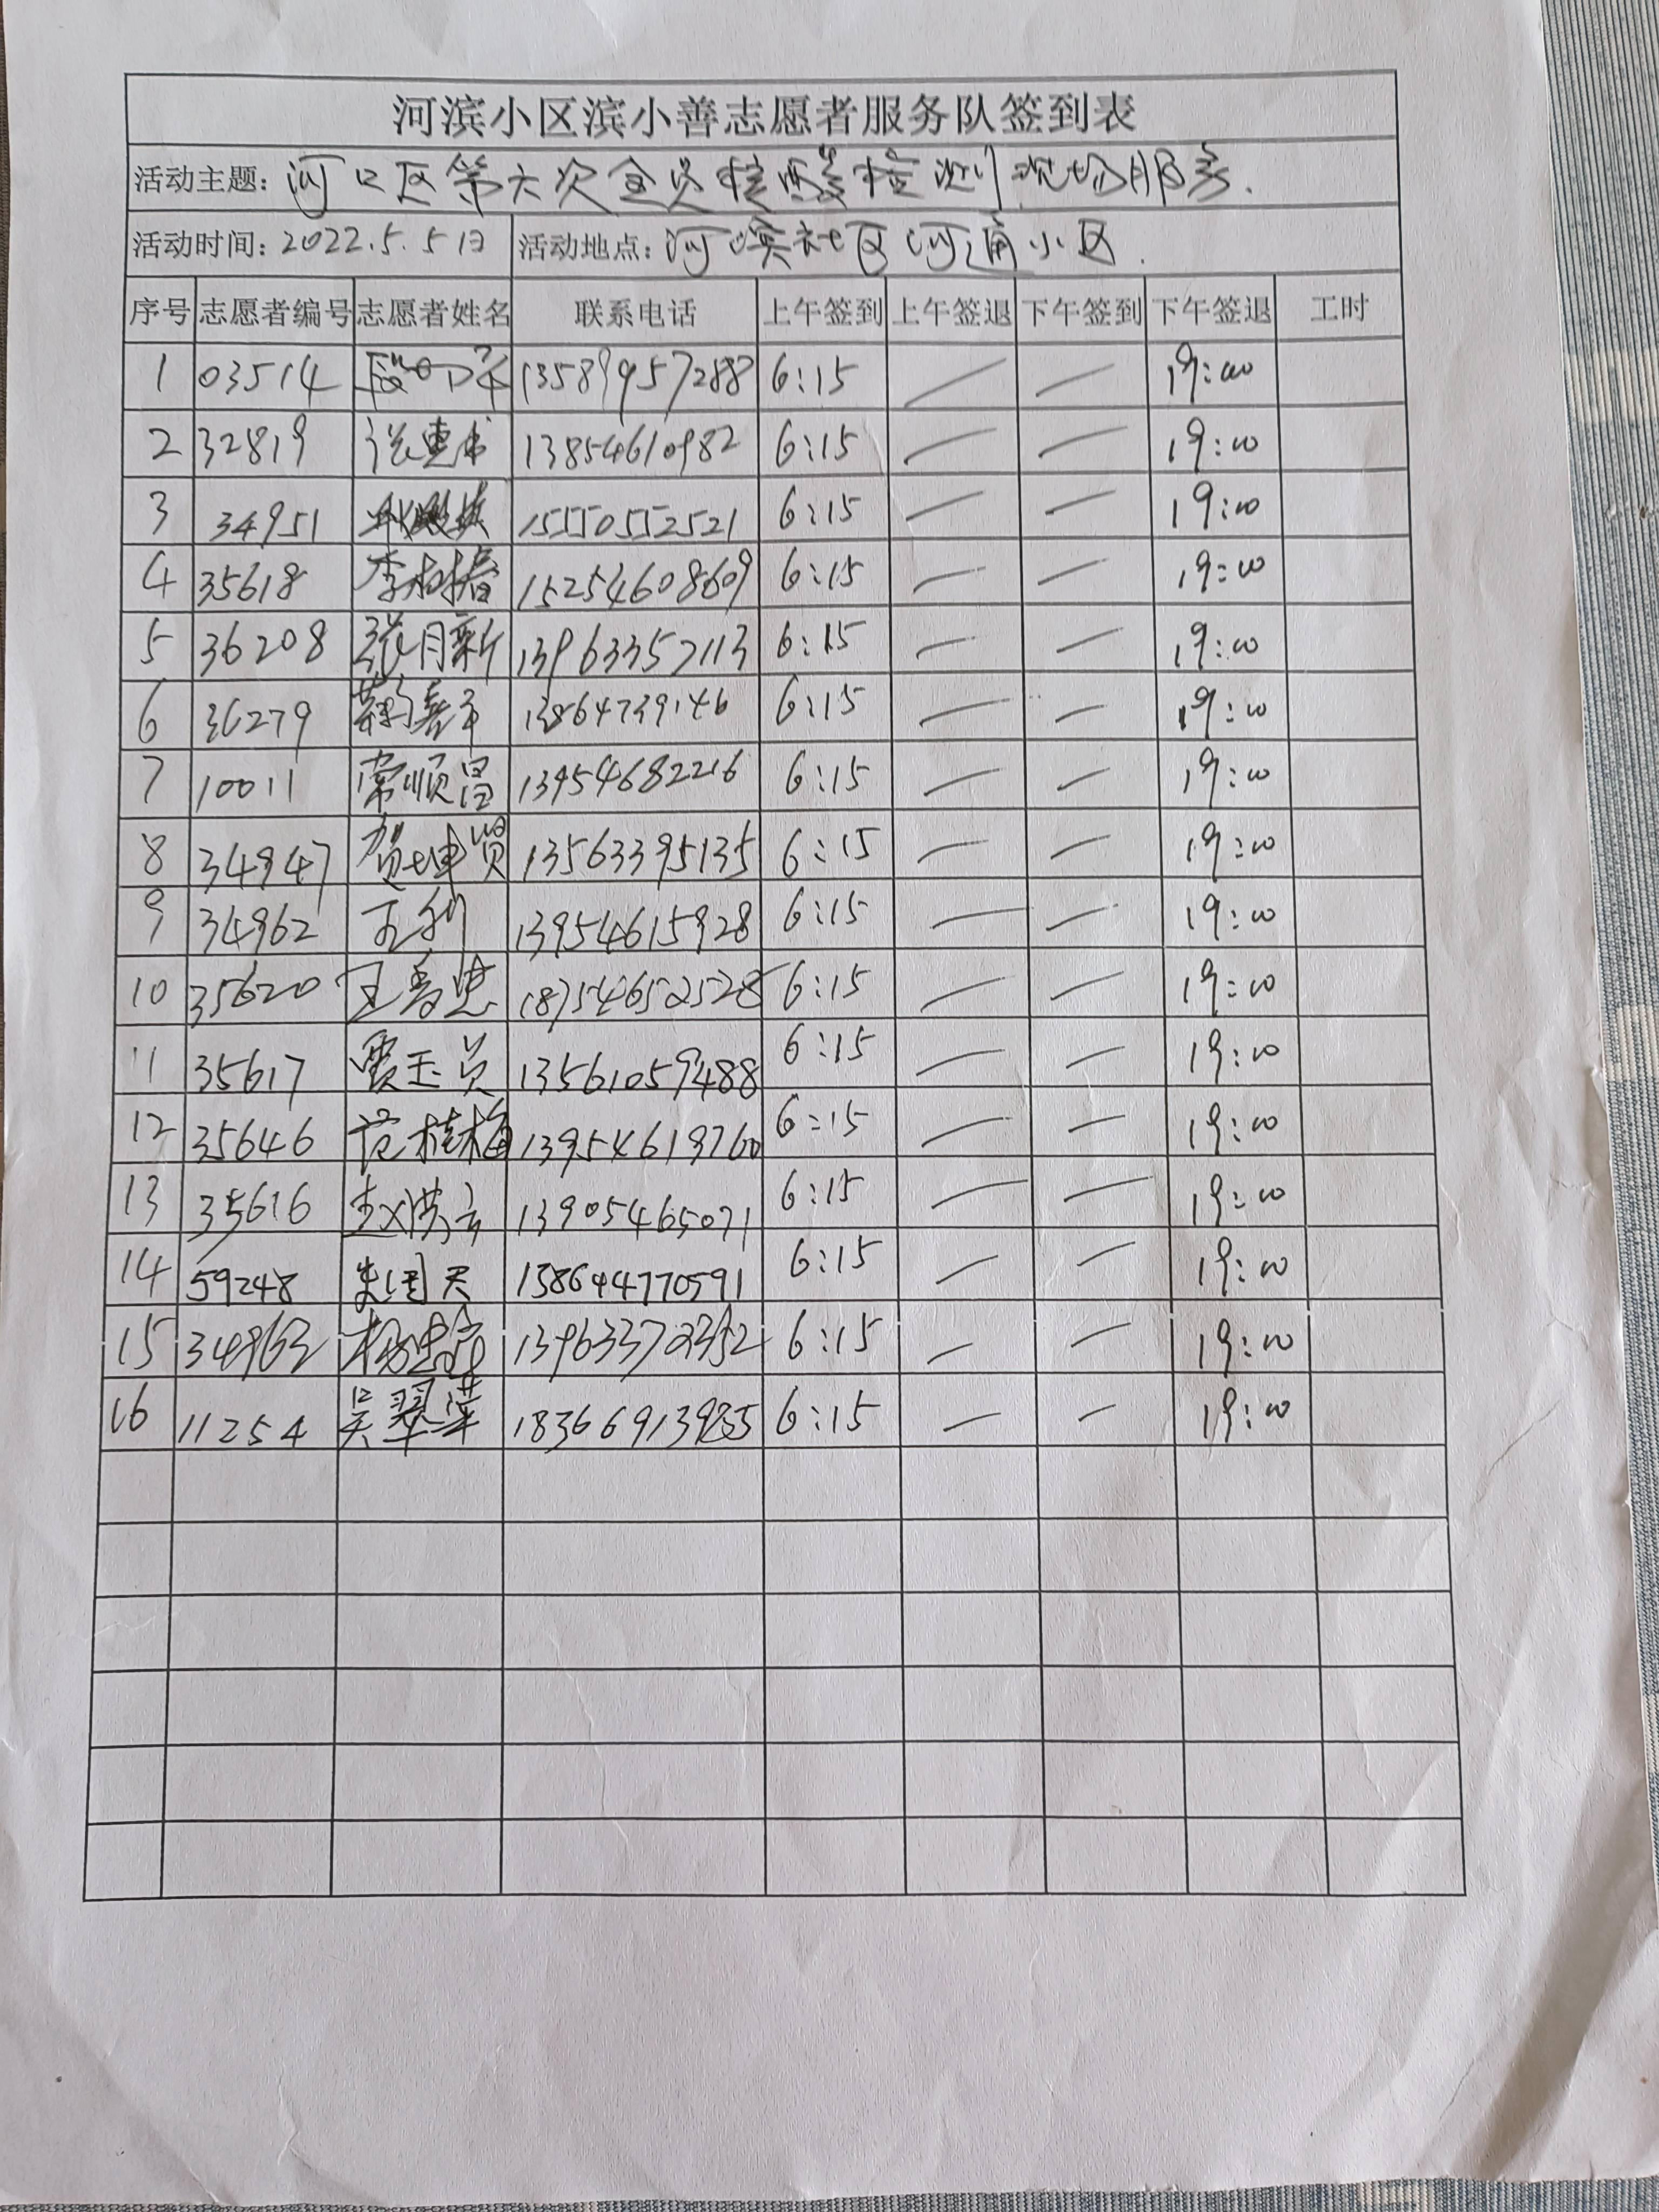 河滨小区滨小善志愿者服务队签到表
活动主题：河口区第六次全员核酸检测现场服务.
活动时间：2022.5.5日 活动地点：河滨社区河通小区.
序号 志愿者编号 志愿者姓名 联系电话 上午签到 上午签退 下午签到 下午签退 工时
1 03514 13589957288 6:15 — — 19:00
2 32819 张惠 13854610982 6:15 — — 19:00
3 34951 15550552521 6:15 — — 19:00
4 35618 李树椿 15254608609 6:15 — — 19:00
5 36208 张月新 13963357113 6:15 — — 19:00
6 36279 13864739146 6:15 — — 19:00
7 10011 常顺昌 13954682216 6:15 — — 19:00
8 34947 贺坤贤 13563395135 6:15 — — 19:00
9 34962 王利 13954615928 6:15 — — 19:00
10 35620 王秀忠 18754652528 6:15 — — 19:00
11 35617 贾玉员 13561059488 6:15 — — 19:00
12 35646 范桂梅 13954619760 6:15 — — 19:00
13 35616 赵洪云 13905465071 6:15 — — 19:00
14 59248 朱国天 158644770591 6:15 — — 19:00
15 34963 13963372352 6:15 — — 19:00
16 11254 吴翠萍 18366913985 6:15 — — 19:00